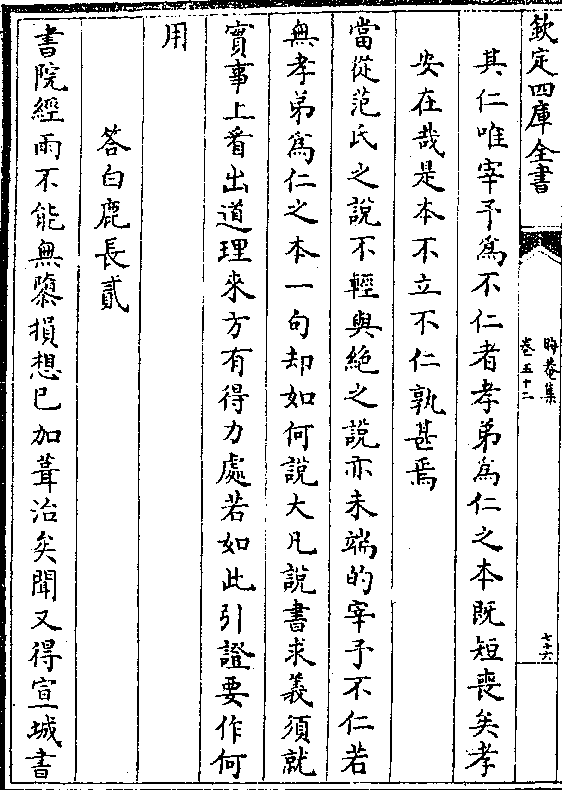 欽定四庫全書
晦菴集
卷五十二
七十六
其仁唯宰予為不仁者孝弟為仁之本既短喪矣孝
安在哉是本不立不仁孰甚焉
當從范氏之說不輕與絶之說亦未端的宰予不仁若
無孝弟為仁之本一句却如何說大凡說書求義須就
實事上看出道理來方有得力處若如此引證要作何
用
答白鹿長貳
書院經雨不能無隳損想已加葺治矣聞又得宣城書